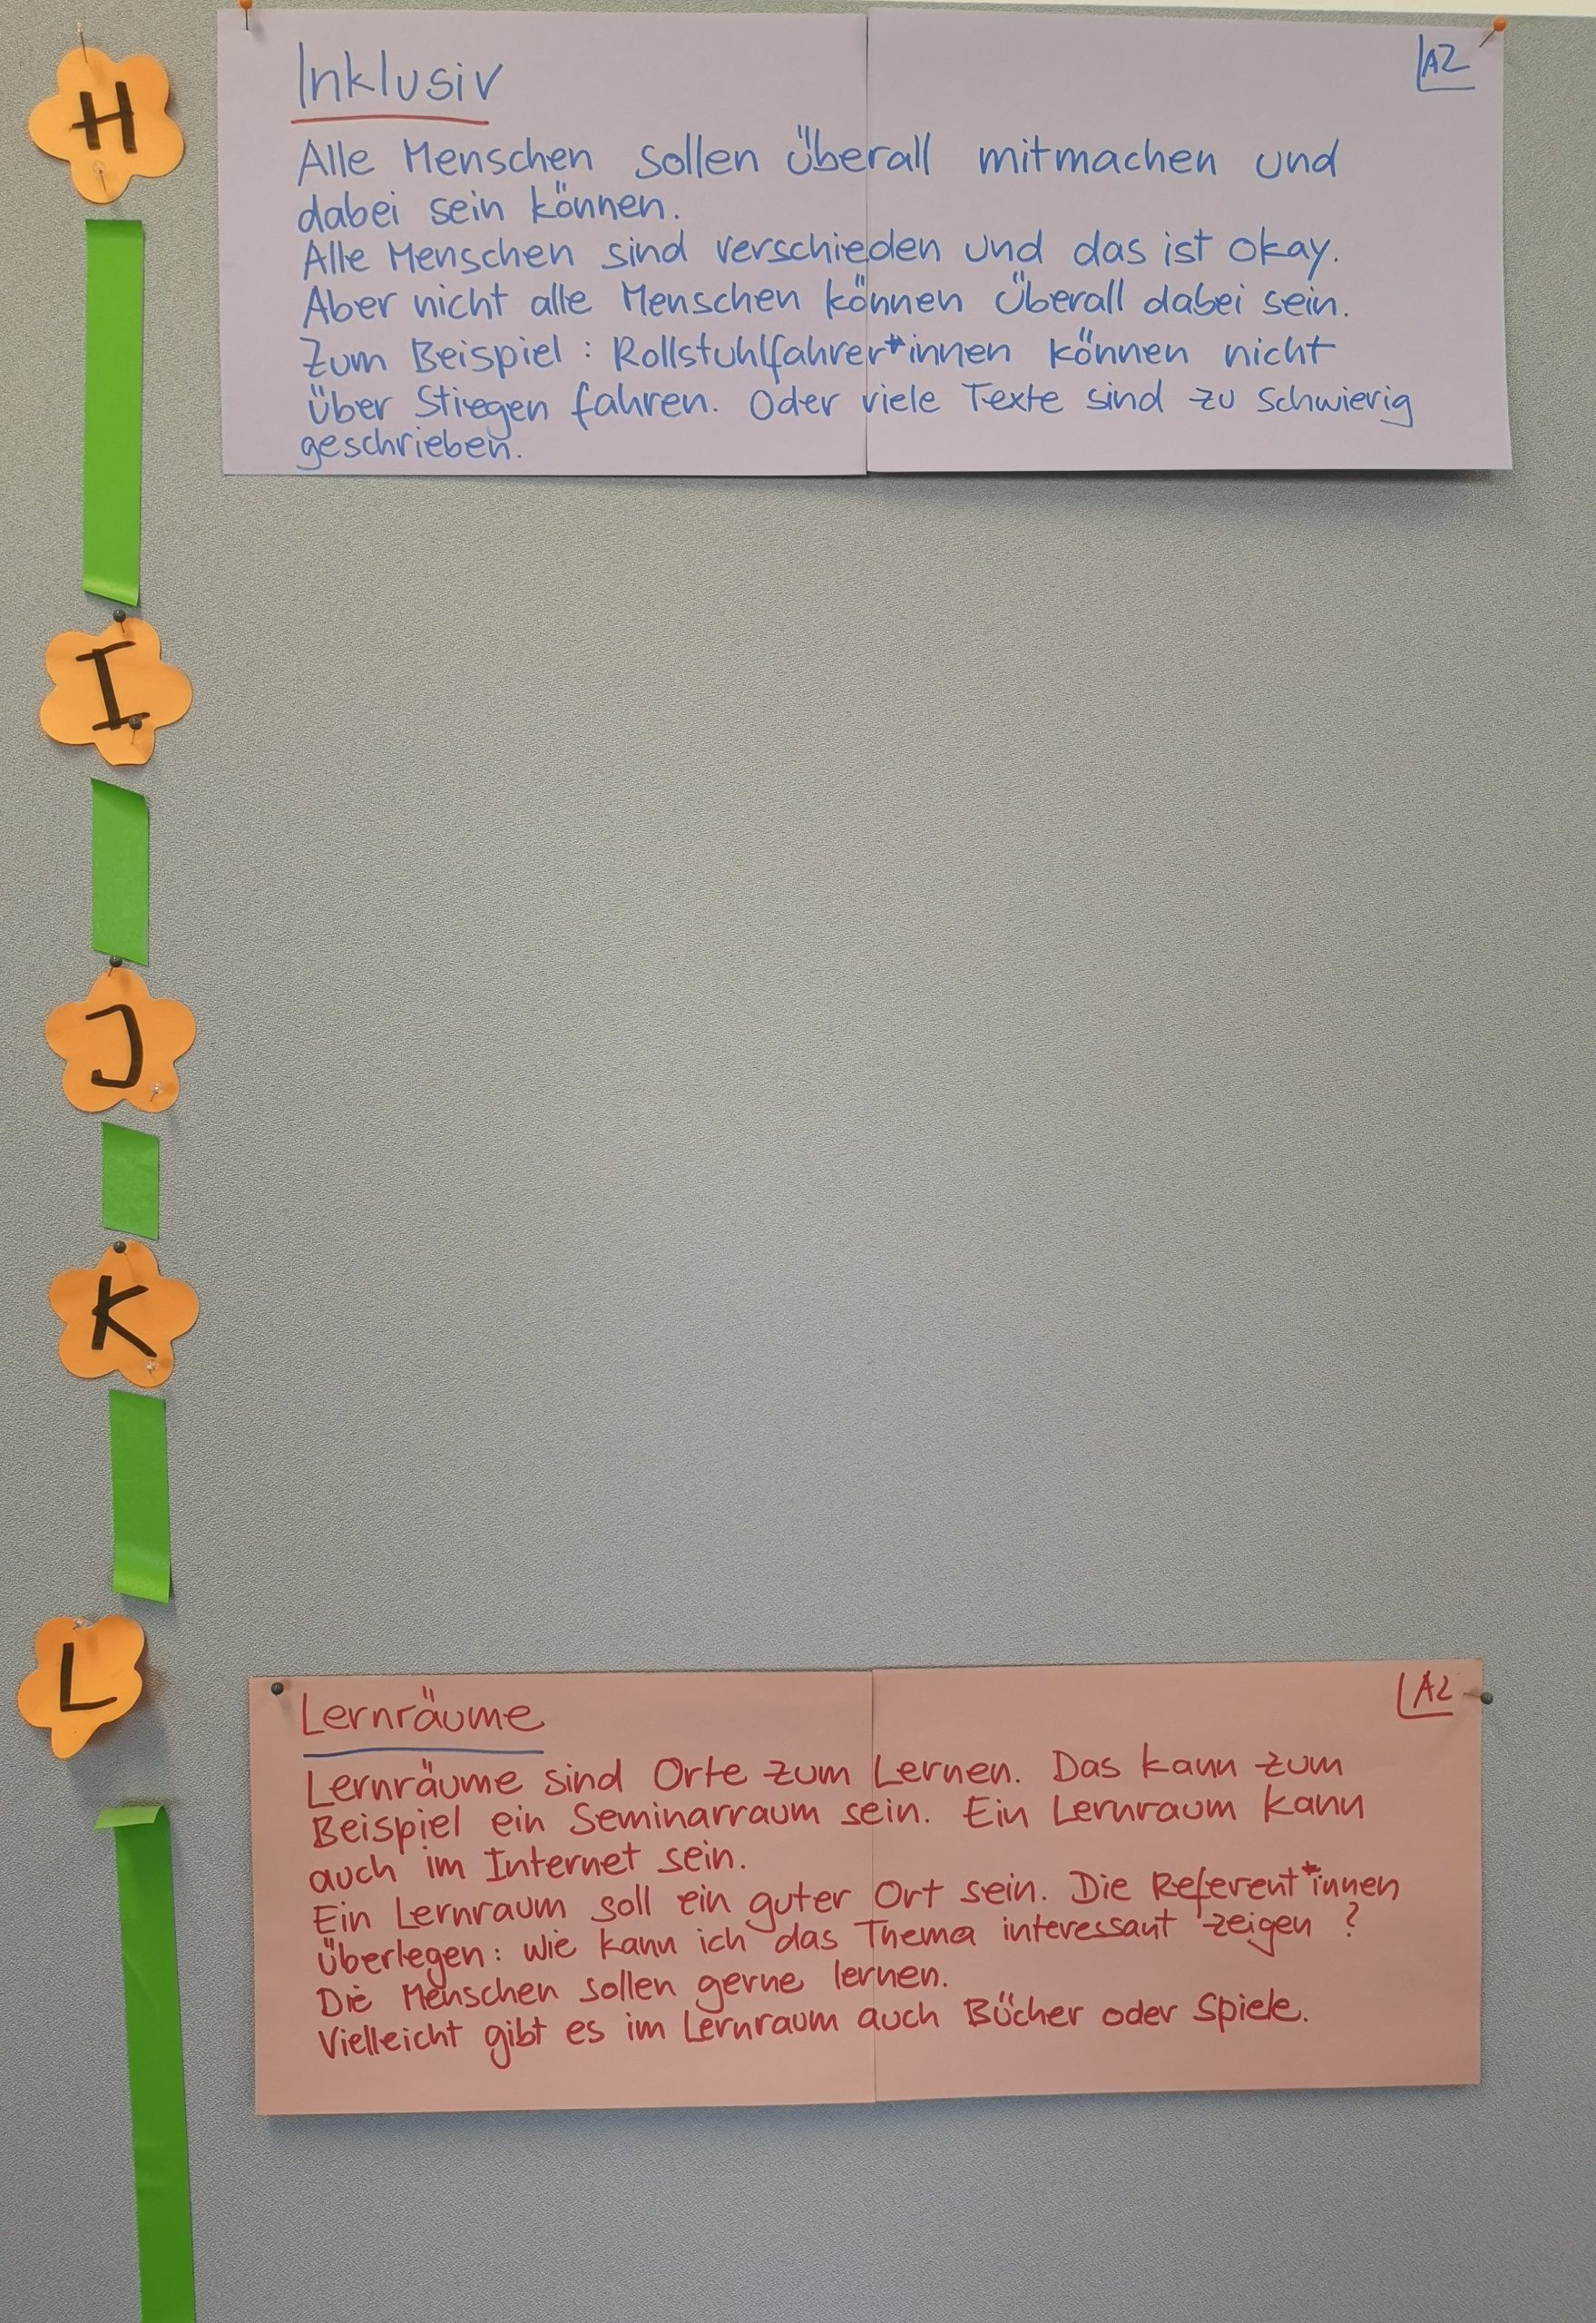 H
Inklusiv
A2
Alle Menschen sollen überall mitmachen und
dabei sein können.
Alle Menschen sind verschieden und das ist okay.
Aber nicht alle Menschen können überall dabei sein.
Zum Beispiel: Rollstuhlfahrer*innen können nicht
über Stiegen fahren. Oder viele Texte sind zu schwierig
geschrieben.
I
J
K
L
Lernräume
A2
Lernräume sind Orte zum Lernen. Das kann zum
Beispiel ein Seminarraum sein. Ein Lernraum kann
auch im Internet sein.
Ein Lernraum soll ein guter Ort sein. Die Referent*innen
überlegen: Wie kann ich das Thema interessant zeigen?
Die Menschen sollen gerne lernen.
Vielleicht gibt es im Lernraum auch Bücher oder Spiele.